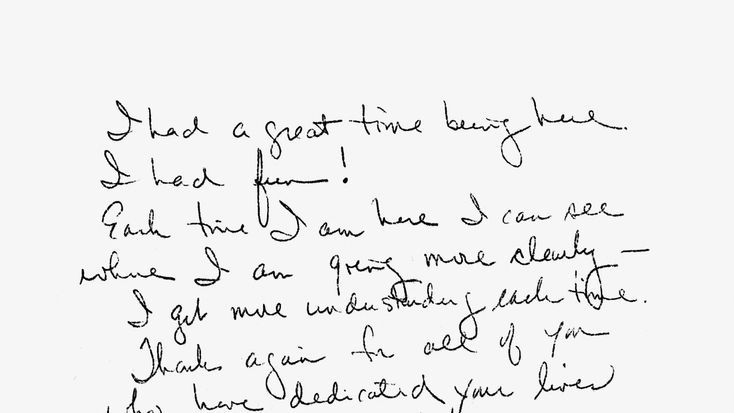 I had a great time being here.
I had fun!
Each time I am here I can see
where I am going more clearly —
I get more understanding each time.
Thanks again for all of you
who have dedicated your lives